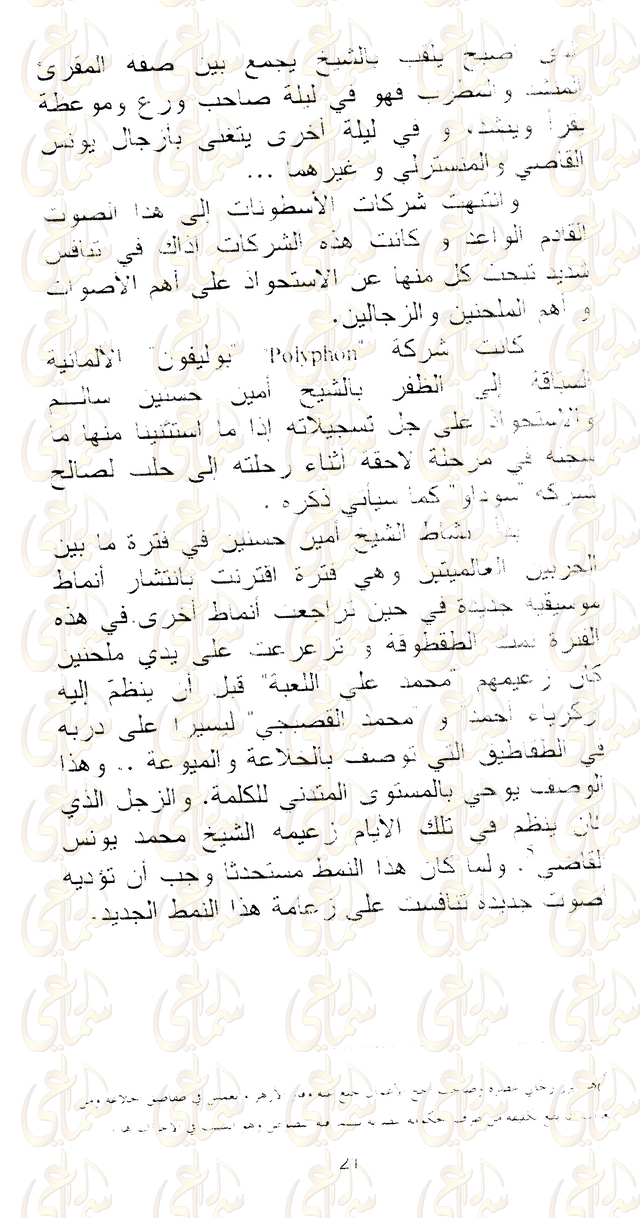 أصبح يلقب بالشيخ يجمع بين صفة المقرئ
المنشد والمطرب فهو في ليلة صاحب ورع وموعظة
يقرأ وينشد، و في ليلة أخرى يتغنى بأزجال يونس
القاضي و المنسترلي و غيرهما ...
وانتبهت شركات الأسطونات إلى هذا الصوت
القادم الواعد و كانت هذه الشركات آنذاك في تنافس
شديد تبحث كل منها عن الاستحواذ على أهم الأصوات
و أهم الملحنين و الزجالين.
كانت شركة "Polyphon" "بوليفون" الألمانية
السباقة إلى الظفر بالشيخ أمين حسنين سالم
والاستحواذ على جل تسجيلاته إذا ما استثنينا منها ما
سجله في مرحلة لاحقة أثناء رحلته إلى حلب لصالح
شركة "سودوا" كما سيأتي ذكره .
بدأ نشاط الشيخ أمين حسنين في فترة ما بين
الحربين العالميتين وهي فترة اقترنت بانتشار أنماط
موسيقية جديدة في حين تراجعت أنماط أخرى. في هذه
الفترة نمت الطقطوقة و ترعرعت على يدي ملحنين
كان زعيمهم "محمد علي اللعبة" قبل أن ينظم إليه
"زكرياء أحمد" و "محمد القصبجي" ليسيرا على دربه
في الطقاطيق التي توصف بالخلاعة و الميوعة .. وهذا
الوصف يوحي بالمستوى المتدني للكلمة. و الزجل الذي
كان ينظم في تلك الأيام زعيمه الشيخ محمد يونس
القاضي. ولما كان هذا النمط مستحدثا وجب أن تؤديه
أصوت جديدة تنافست على زعامة هذا النمط الجديد.
21